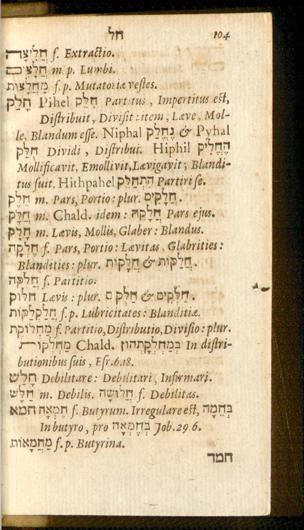 חל 104
חֲלִיצָה f. Extractio.
חֲלָצַיִם m. p. Lumbi.
מַחֲלָצוֹת f. p. Mutatoriæ vestes.
חָלַק Pihel חִלֵּק Partitus, Impertitus est,
Distribuit, Divisit: item, Læve, Mol-
le, Blandum esse. Niphal נֶחֱלַק & Pyhal
חֻלַּק Dividi, Distribui. Hiphil הֶחֱלִיק
Mollificavit, Emollivit, Lævigavit; Blandi-
tus suit. Hithpahel הִתְחַלֵּק Partiri se.
חֵלֶק m. Pars, Portio: plur. חֲלָקִים.
חֲלָק m. Chald. idem: חֲלָקֵהּ Pars ejus.
חָלָק m. Lævis, Mollis, Glaber: Blandus.
חֶלְקָה f. Pars, Portio: Lævitas, Glabrities:
Blandities: plur. חֲלָקוֹת & חֲלָקוֹת.
חֲלֻקָּה f. Partitio:
חַלּוּק Lævis: plur. חַלֻּקִים & חלקם.
חֲלַקְלַקּוֹת f. p. Lubricitates: Blanditiæ.
מַחֲלוֹקֶת f. Partitio, Distributio, Divisio: plur.
מַחְלְקוֹת Chald. בְּמַחְלְקָתְהוֹן In distri-
butionibus suis, Esr. 6. 18.
חָלַשׁ Debilitare: Debilitari, Infirmari.
חַלָּשׁ m. Debilis. חֲלוּשָׁה f. Debilitas.
חמא חֶמְאָה f. Butyrum. Irregulare est, בְּחֵמָה
In butyro, pro בְּחֶמְאָה Job. 29. 6.
מַחֲמָאוֹת f. p. Butyrina.
חמד